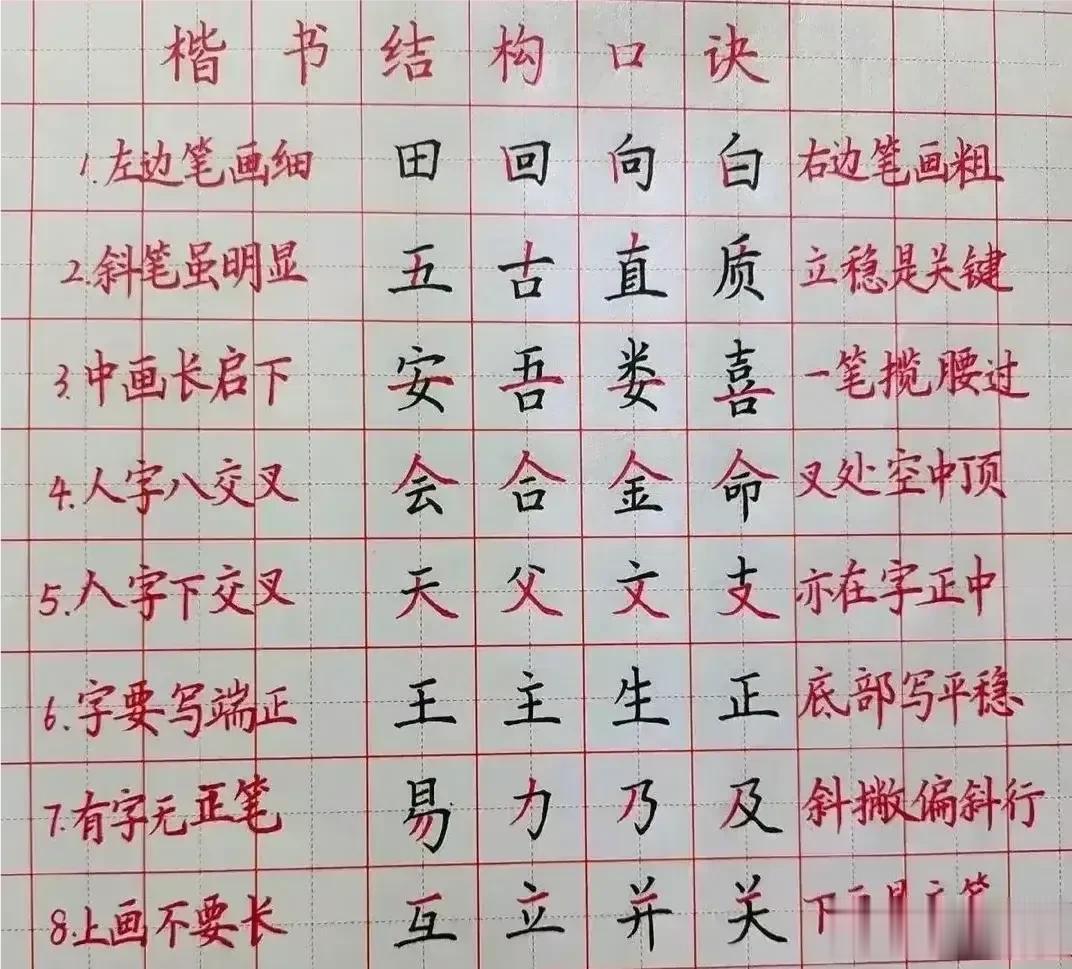 楷书结构口诀
1.左边笔画细 田 回 向 白 右边笔画粗
2.斜笔虽明显 五 古 直 质 立稳是关键
3.中画长启下 安 吾 娄 喜 一笔揽腰过
4.人字八交叉 会 合 金 命 叉处空中顶
5.人字下交叉 天 父 文 支 亦在字正中
6.字要写端正 王 主 生 正 底部写平稳
7.有字无正笔 易 力 乃 及 斜撇偏斜行
8.上画不要长 互 立 并 关 下